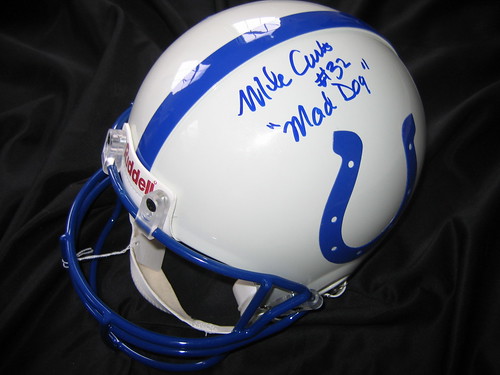 Mike Curtis
#32
"Mad Dog"
Riddell